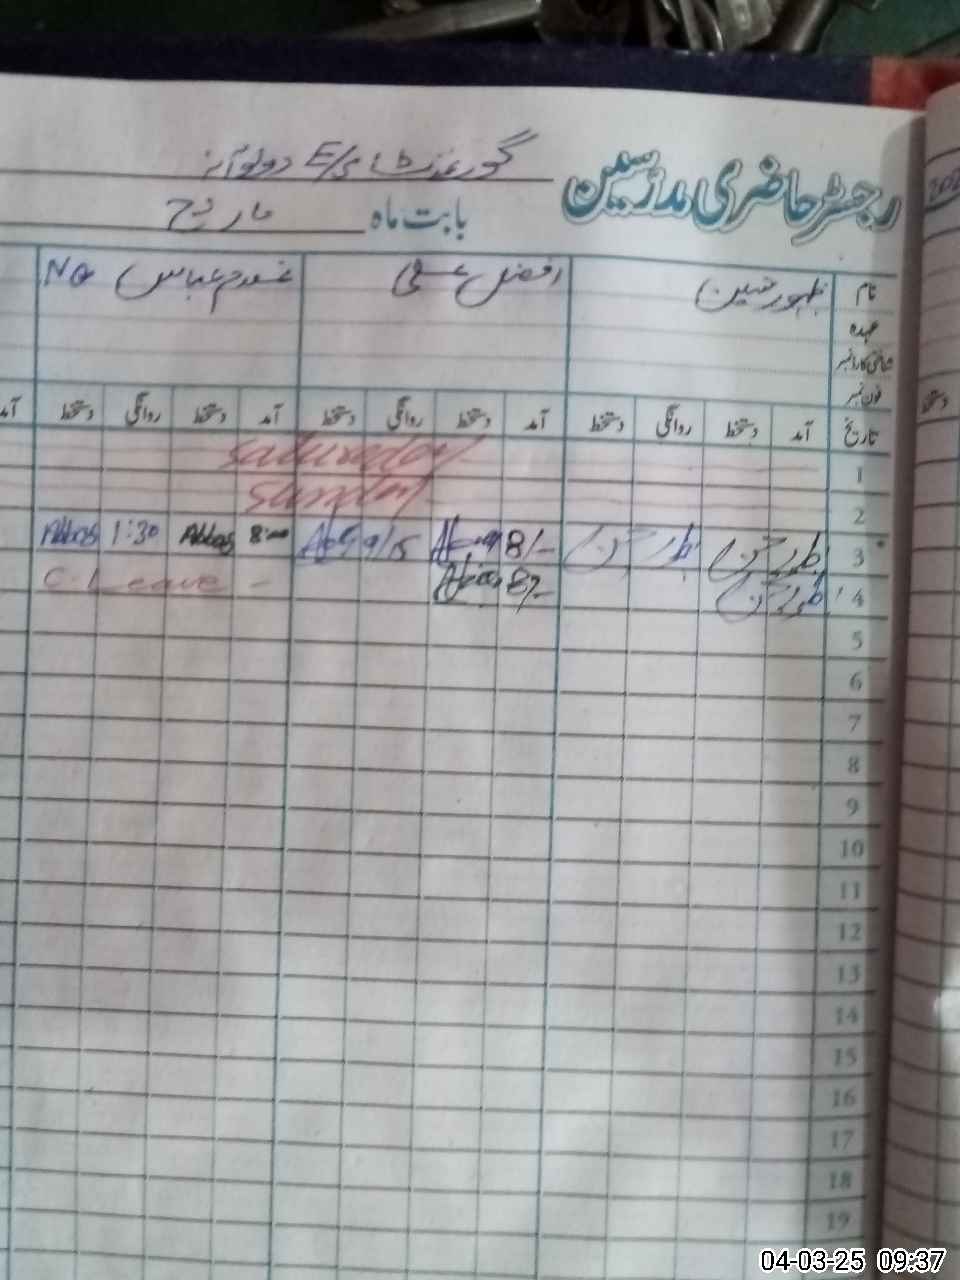 رجسٹر حاضری مدرسین
بابت ماہ مارچ
نام ظہور حسین افضل علی غلام عباس NQ
عہدہ
شناختی کارڈ نمبر
فون نمبر
تاریخ آمد دستخط روانگی دستخط آمد دستخط روانگی دستخط آمد دستخط روانگی دستخط آمد
1 Saturday
2 Sunday
3 8/- 8:00 Abbas 1:30 Abbas
4 8/- C. Leave -
5
6
7
8
9
10
11
12
13
14
15
16
17
18
19
دستخط
04-03-25 09:37